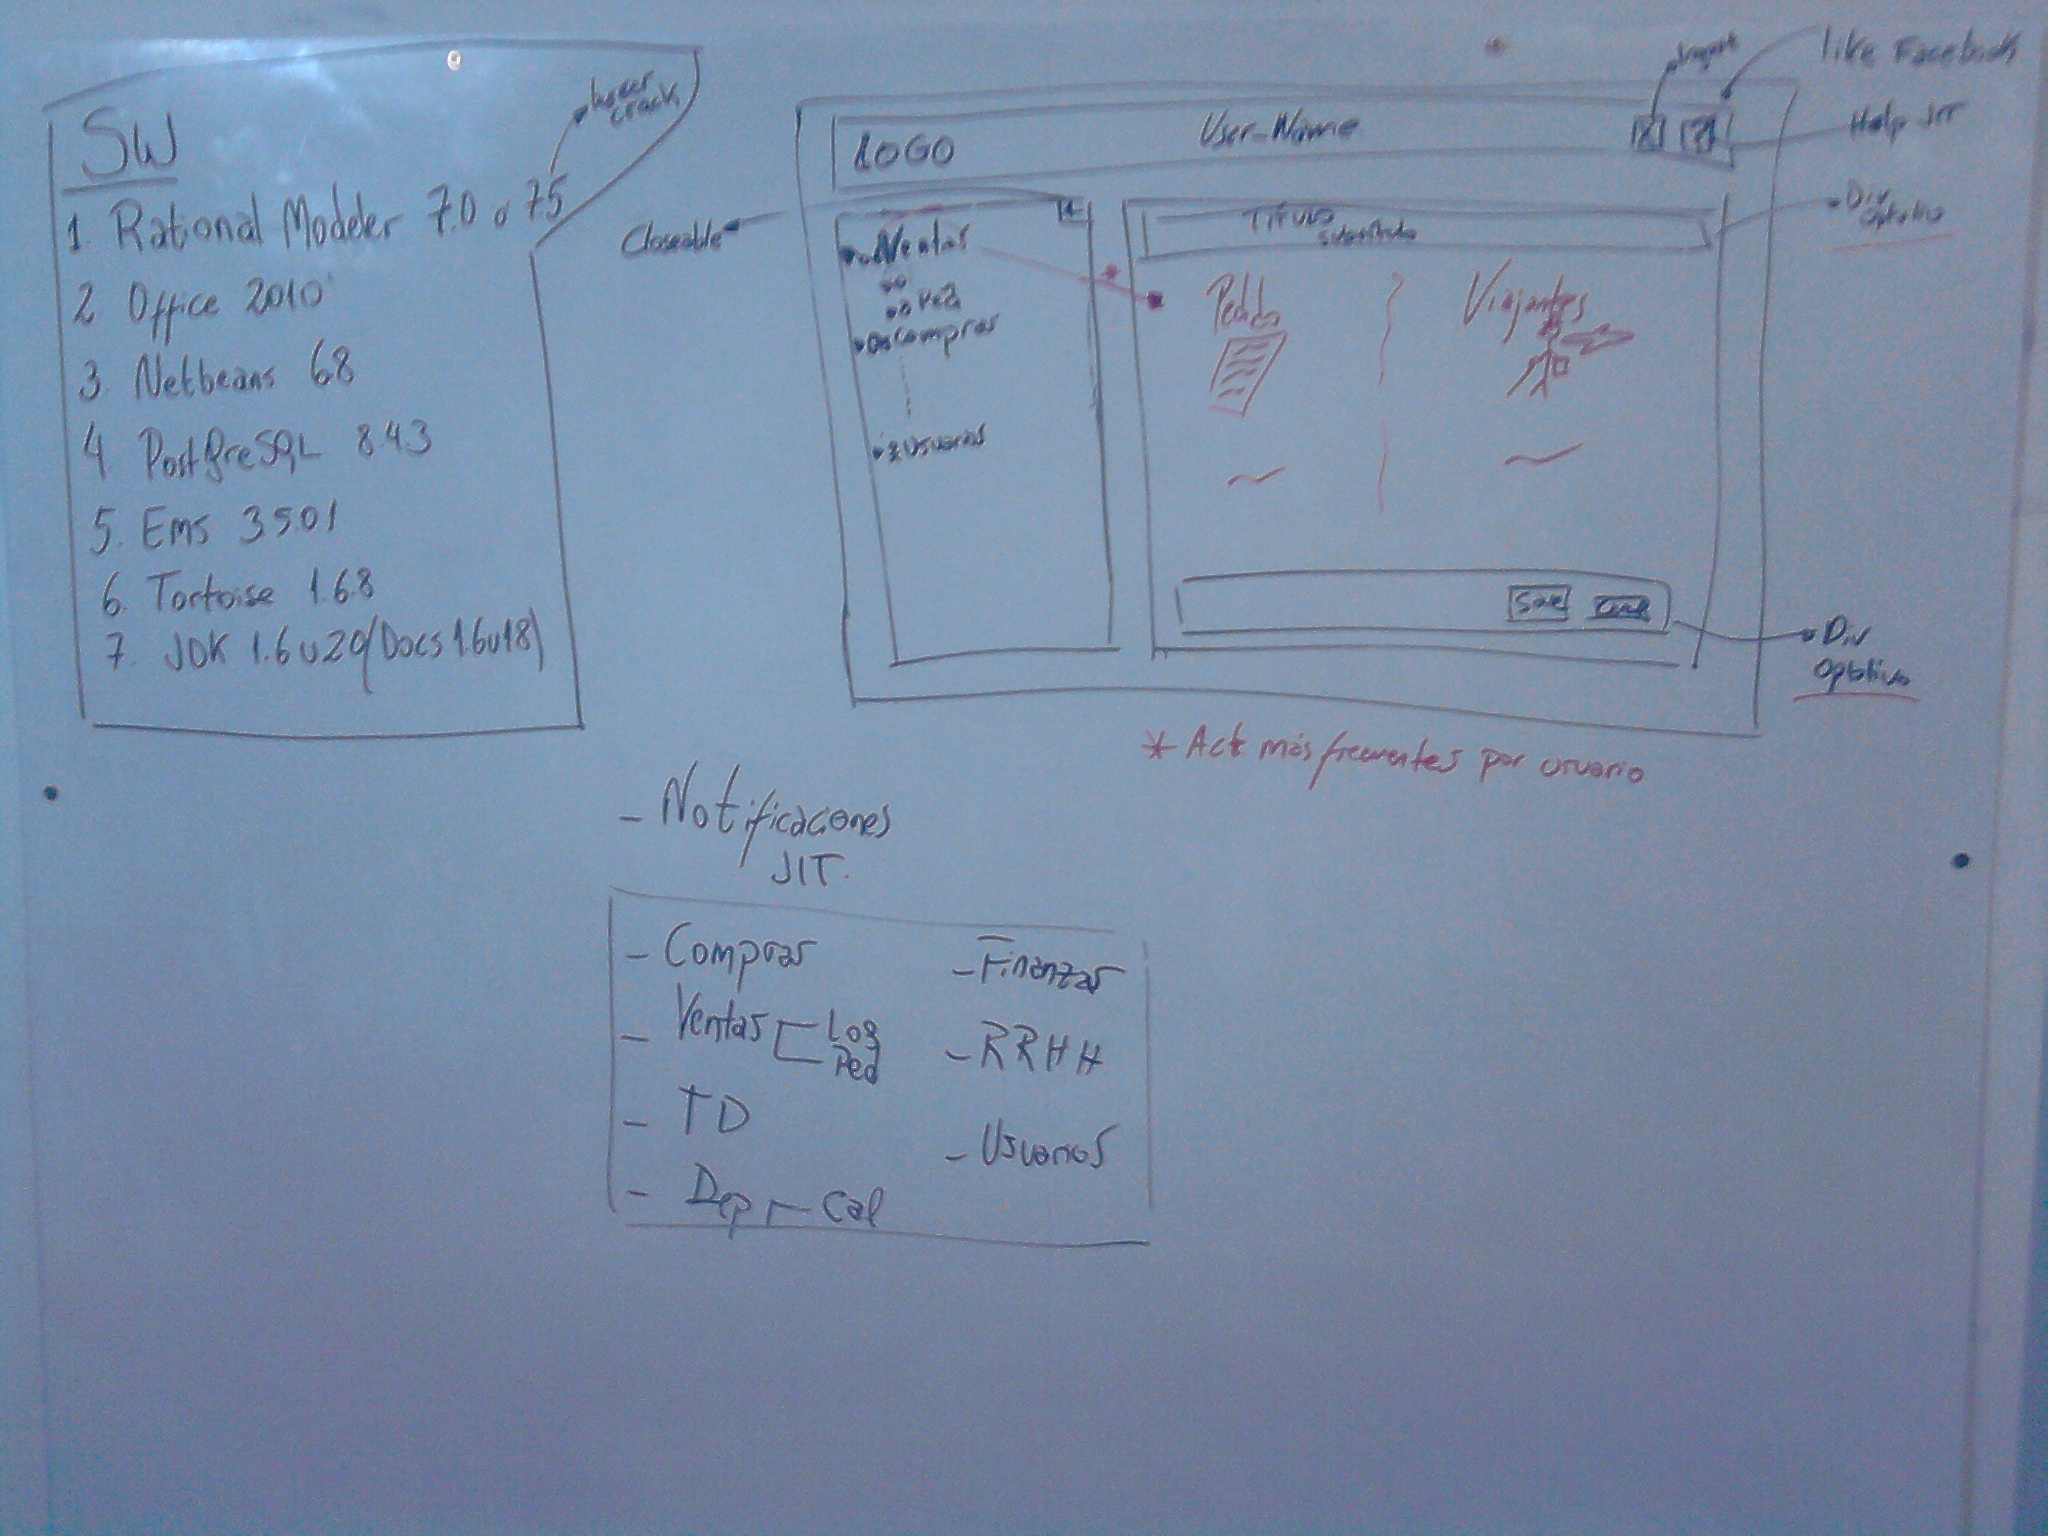 SW
hacer
crack
1. Rational Modeler 7.0 o 7.5
2. Office 2010
3. Netbeans 6.8
4. PostgreSQL 8.4.3
5. Ems 3.5.0.1
6. Tortoise 1.6.8
7. JDK 1.6u20(Docs 1.6u18)
like Facebook
Help JIT
LOGO
User_Name
Closeable
Div
optativo
TITULO
Ventas
Compras
Usuarios
Pedidos
Viajantes
Save
Div
Optativo
* Act más frecuentes por usuario
- Notificaciones
JIT.
- Compras
- Ventas
Log
Ped
- TD
- Dep
Cal
- Finanzas
- RRHH
- Usuarios